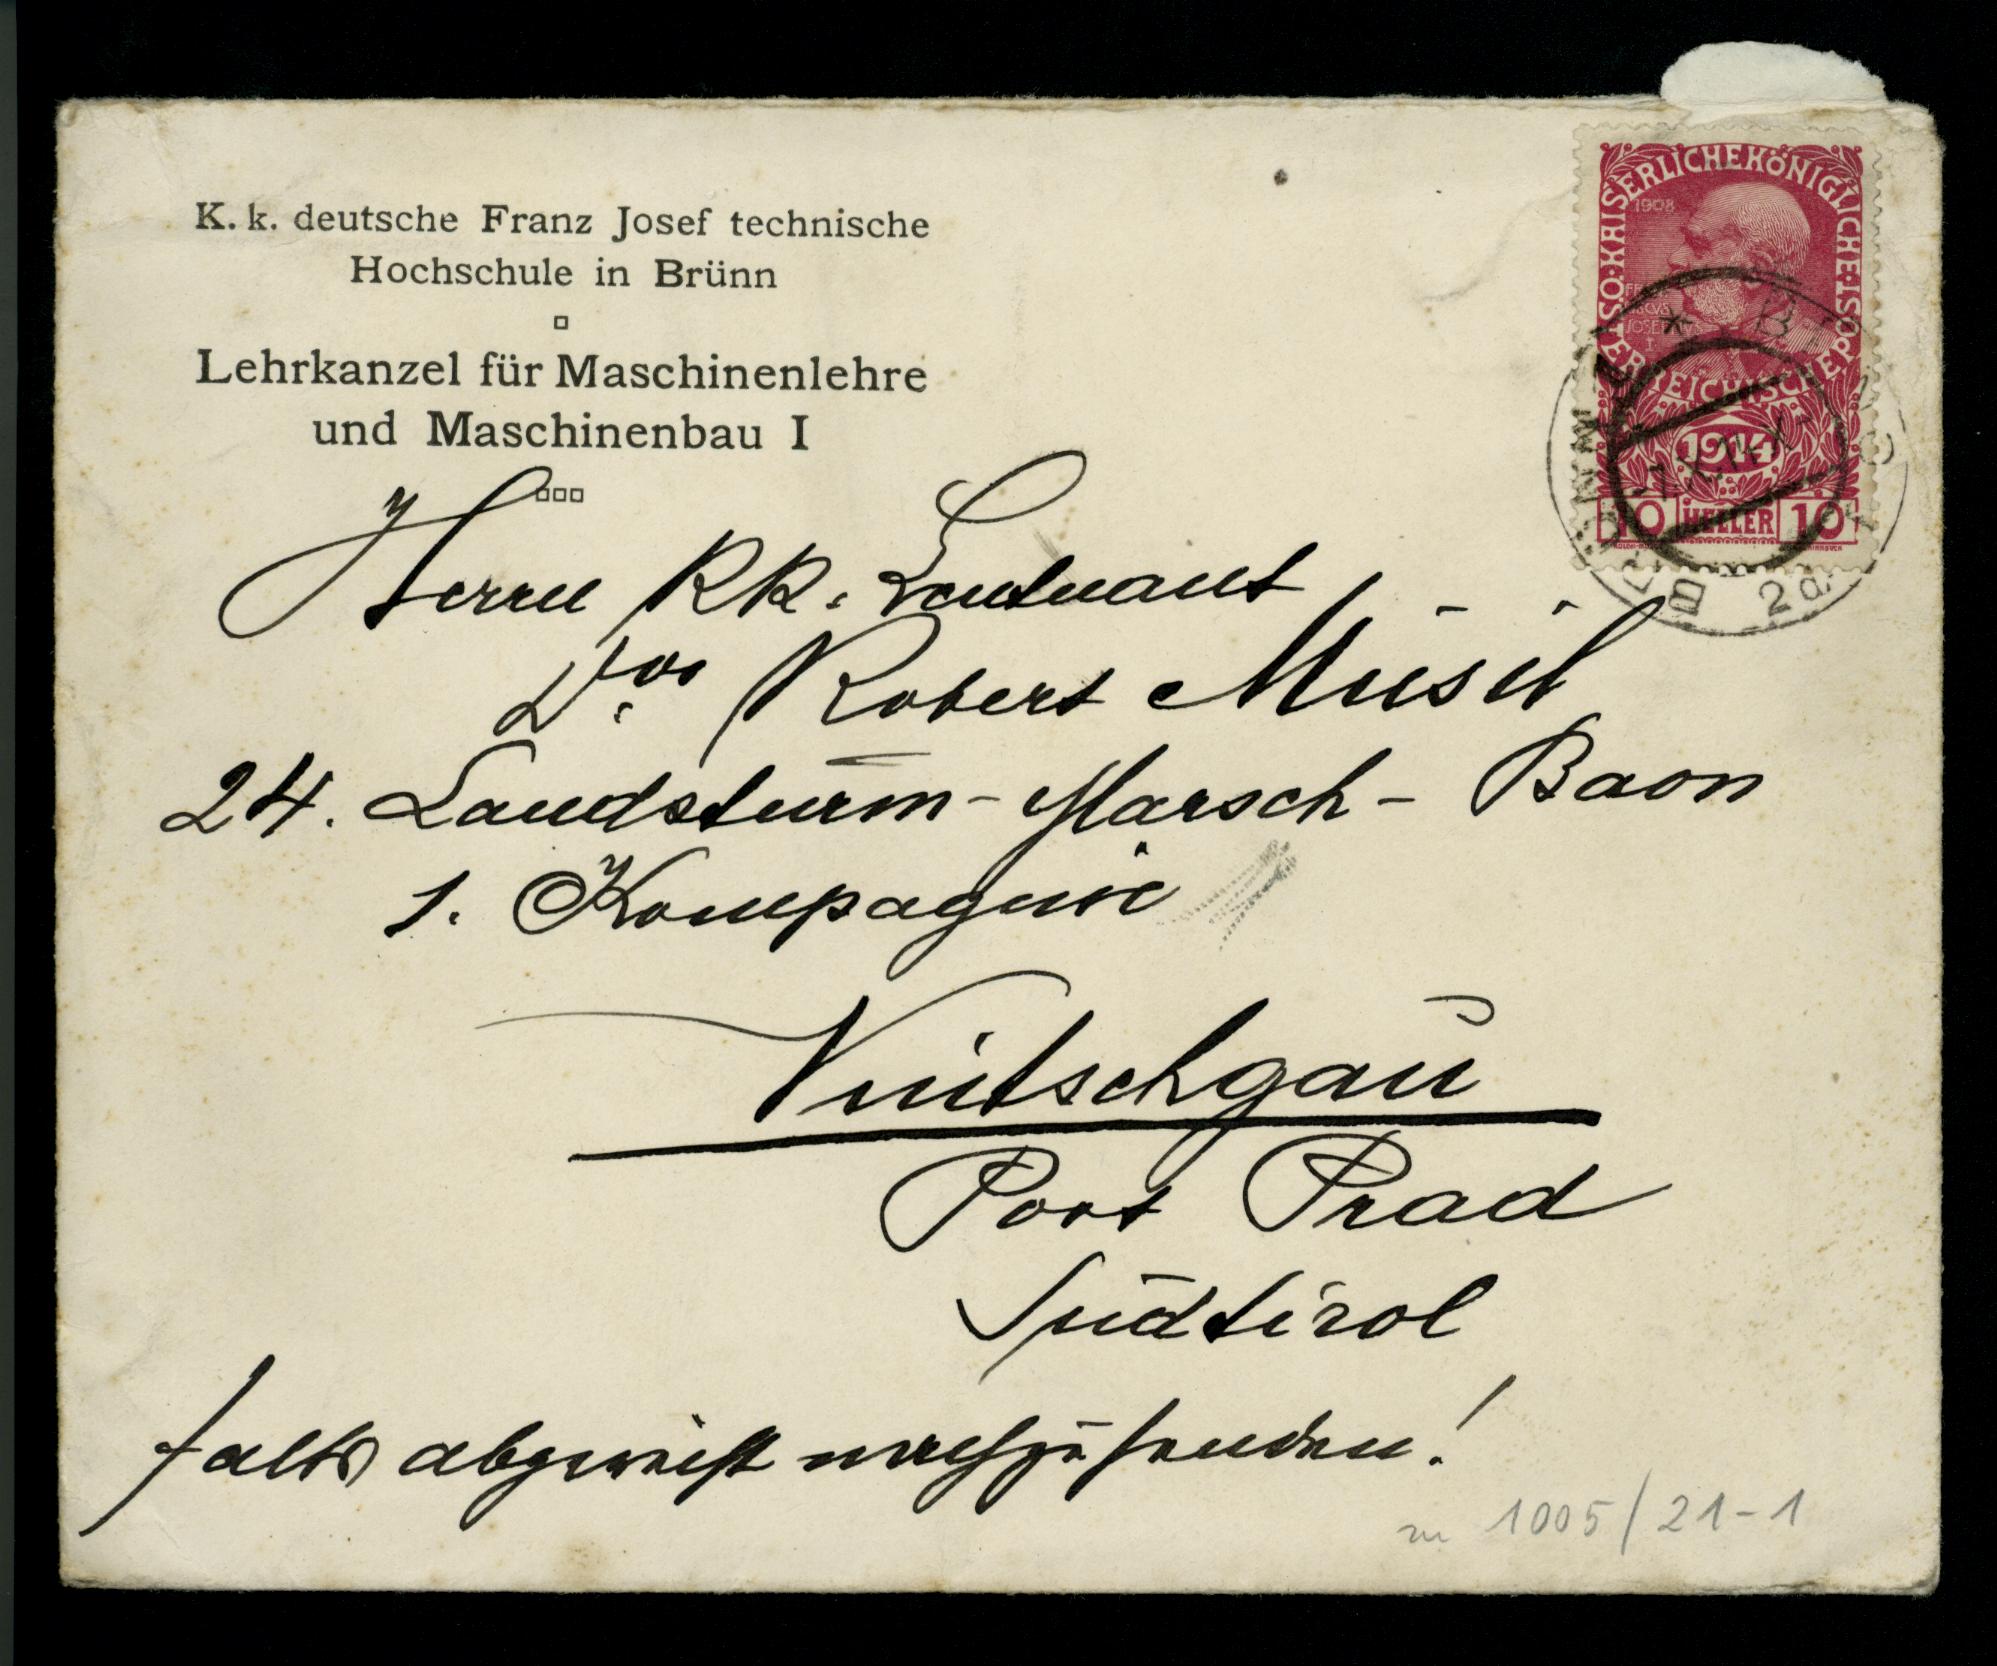 K. k. deutsche Franz Josef technische
Hochschule in Brünn
Lehrkanzel für Maschinenlehre
und Maschinenbau I
KAISERLICHE KÖNIGLICHE ÖSTERREICHISCHE POST
1908
1914
10 HELLER 10
BRÜNN 2d
Herrn KK. Leutnant
Dor Robert Musil
24. Landsturm-Marsch-Baon
1. Kompagnie
Vintschgau
Post Prad
Südtirol
falls abgereist nachzusenden!
zu 1005/21-1